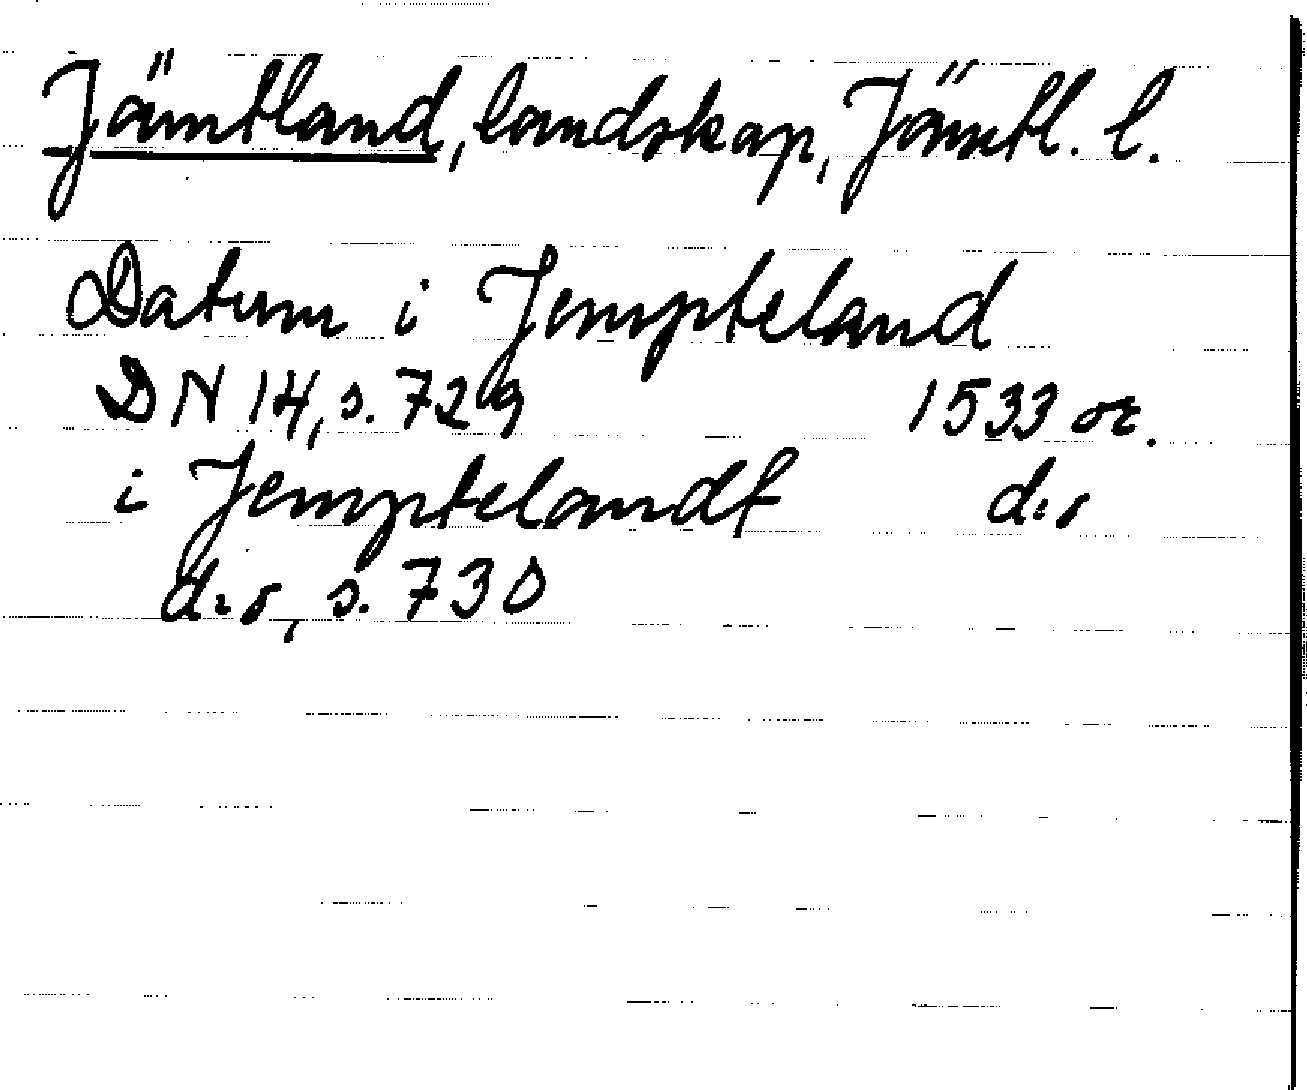 Jämtland, landskap, Jämtl. l.
Datum i Jempteland
DN 14, s. 729 1533 or.
i Jemptelandt d:o
d:o, s. 730